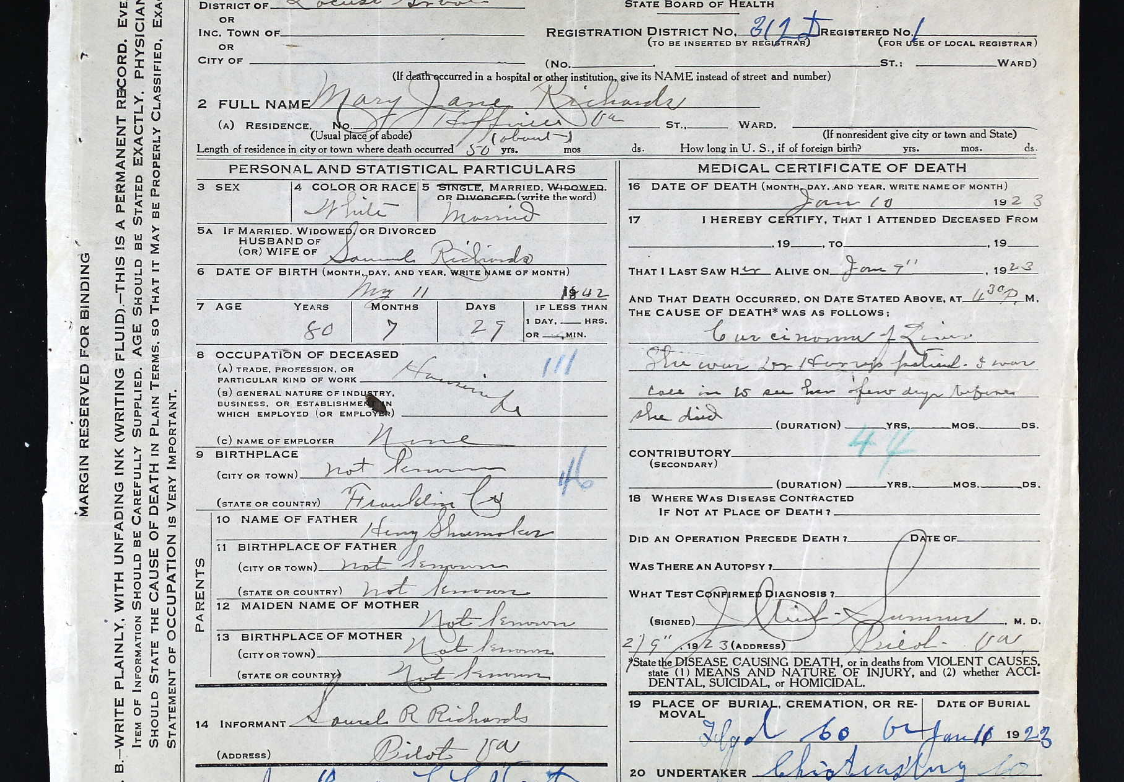 DISTRICT OF Locust Grove
STATE BOARD OF HEALTH
OR
INC. TOWN OF
REGISTRATION DISTRICT No. 312 I REGISTERED No. 1
(TO BE INSERTED BY REGISTRAR) (FOR USE OF LOCAL REGISTRAR)
OR
CITY OF (No. ST.; WARD)
(If death occurred in a hospital or other institution, give its NAME instead of street and number)
2 FULL NAME Mary Jane Richards
(A) RESIDENCE, No. Va ST., WARD.
(Usual place of abode) (about) (If nonresident give city or town and State)
Length of residence in city or town where death occurred 50 yrs. mos ds. How long in U. S., if of foreign birth? yrs. mos. ds.
PERSONAL AND STATISTICAL PARTICULARS
3 SEX 4 COLOR OR RACE 5 SINGLE, MARRIED, WIDOWED,
OR DIVORCED (write the word)
White Married
5A IF MARRIED, WIDOWED, OR DIVORCED
HUSBAND OF
(OR) WIFE OF Samuel Richards
6 DATE OF BIRTH (MONTH, DAY, AND YEAR, WRITE NAME OF MONTH)
My 11 1842
7 AGE YEARS MONTHS DAYS IF LESS THAN
1 DAY, HRS.
OR MIN.
80 7 29
8 OCCUPATION OF DECEASED
(A) TRADE, PROFESSION, OR
PARTICULAR KIND OF WORK
111
(B) GENERAL NATURE OF INDUSTRY,
BUSINESS, OR ESTABLISHMENT IN
WHICH EMPLOYED (OR EMPLOYER)
(C) NAME OF EMPLOYER None
9 BIRTHPLACE
(CITY OR TOWN) not known
46
(STATE OR COUNTRY) Franklin Co
PARENTS
10 NAME OF FATHER Henry Shumaker
11 BIRTHPLACE OF FATHER
(CITY OR TOWN) not known
(STATE OR COUNTRY) not known
12 MAIDEN NAME OF MOTHER
Not known
13 BIRTHPLACE OF MOTHER
(CITY OR TOWN) Not known
(STATE OR COUNTRY) Not known
14 INFORMANT Samuel R Richards
(ADDRESS) Pilot Va
MEDICAL CERTIFICATE OF DEATH
16 DATE OF DEATH (MONTH, DAY, AND YEAR, WRITE NAME OF MONTH)
Jan 10 1923
17 I HEREBY CERTIFY, THAT I ATTENDED DECEASED FROM
, 19 , TO , 19
THAT I LAST SAW Her ALIVE ON Jan 9" , 1923
AND THAT DEATH OCCURRED, ON DATE STATED ABOVE, AT 4 30 P. M.
THE CAUSE OF DEATH* WAS AS FOLLOWS:
Carcinoma of Liver
She was Dr patient. I was
case in to see her few days before
she died
(DURATION) YRS. MOS. DS.
44
CONTRIBUTORY
(SECONDARY)
(DURATION) YRS. MOS. DS.
18 WHERE WAS DISEASE CONTRACTED
IF NOT AT PLACE OF DEATH?
DID AN OPERATION PRECEDE DEATH? DATE OF
WAS THERE AN AUTOPSY?
WHAT TEST CONFIRMED DIAGNOSIS?
(SIGNED) M. D.
2/9" , 1923 (ADDRESS) Pilot Va
*State the DISEASE CAUSING DEATH, or in deaths from VIOLENT CAUSES,
state (1) MEANS AND NATURE OF INJURY, and (2) whether ACCI-
DENTAL, SUICIDAL, or HOMICIDAL.
19 PLACE OF BURIAL, CREMATION, OR RE-
MOVAL
DATE OF BURIAL
Floyd Co Va Jan 11 1923
20 UNDERTAKER Christiansburg
MARGIN RESERVED FOR BINDING
B.—WRITE PLAINLY, WITH UNFADING INK (WRITING FLUID).—THIS IS A PERMANENT RECORD. EVE
ITEM OF INFORMATION SHOULD BE CAREFULLY SUPPLIED. AGE SHOULD BE STATED EXACTLY. PHYSICIAN
SHOULD STATE THE CAUSE OF DEATH IN PLAIN TERMS, SO THAT IT MAY BE PROPERLY CLASSIFIED. EXA
STATEMENT OF OCCUPATION IS VERY IMPORTANT.